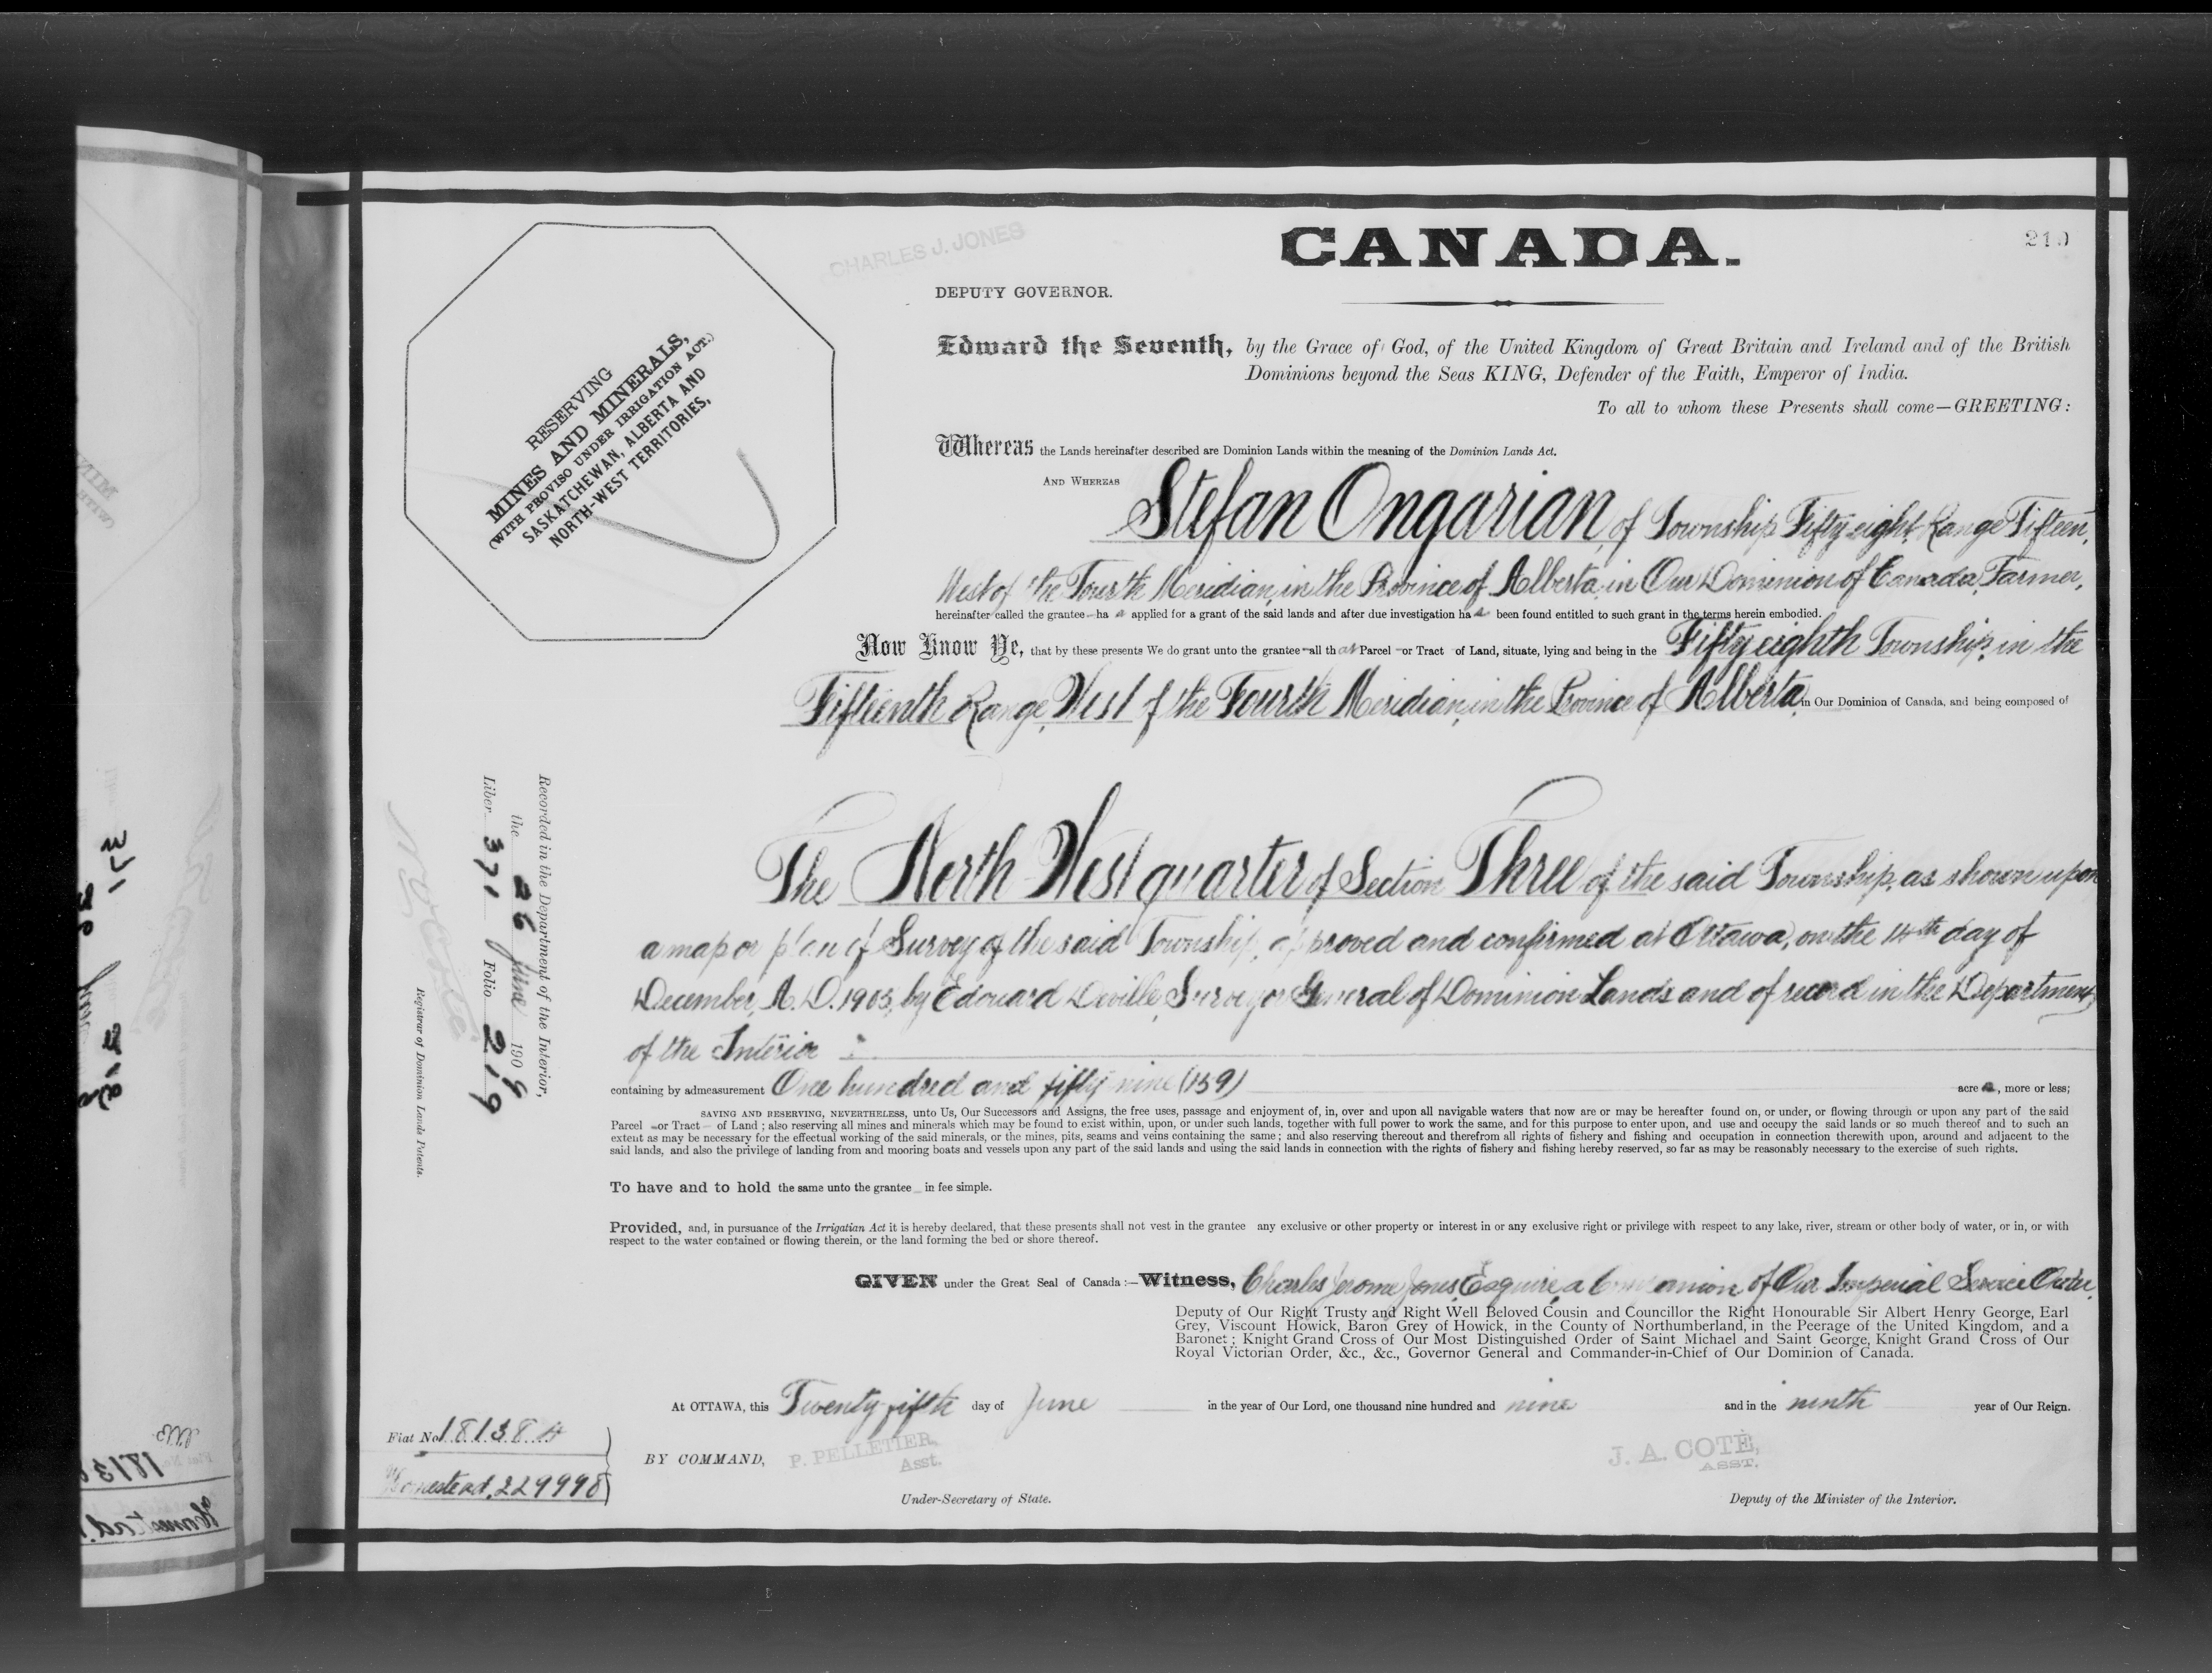 CANADA.
CHARLES J. JONES
DEPUTY GOVERNOR.
RESERVING
MINES AND MINERALS,
(WITH PROVISO UNDER IRRIGATION ACT.)
SASKATCHEWAN, ALBERTA AND
NORTH-WEST TERRITORIES,
Edward the Seventh, by the Grace of God, of the United Kingdom of Great Britain and Ireland and of the British
Dominions beyond the Seas KING, Defender of the Faith, Emperor of India.
To all to whom these Presents shall come—GREETING:
Whereas the Lands hereinafter described are Dominion Lands within the meaning of the Dominion Lands Act.
AND WHEREAS Stefan Ongarian, of Township Fifty eight, Range Fifteen,
West of the Fourth Meridian, in the Province of Alberta in Our Dominion of Canada, Farmer,
hereinafter called the grantee—has applied for a grant of the said lands and after due investigation has been found entitled to such grant in the terms herein embodied.
Now Know Ye, that by these presents We do grant unto the grantee—all that Parcel or Tract of Land, situate, lying and being in the Fifty eighth Township, in the
Fifteenth Range, West of the Fourth Meridian, in the Province of Alberta, in Our Dominion of Canada, and being composed of
The North West quarter of Section Three of the said Township, as shown upon
a map or plan of Survey of the said Township, approved and confirmed at Ottawa, on the 14th day of
December, A.D. 1903, by Edouard Deville, Surveyor General of Dominion Lands and of record in the Department
of the Interior :
containing by admeasurement One hundred and fifty nine (159) acres, more or less;
SAVING AND RESERVING, NEVERTHELESS, unto Us, Our Successors and Assigns, the free uses, passage and enjoyment of, in, over and upon all navigable waters that now are or may be hereafter found on, or under, or flowing through or upon any part of the said
Parcel or Tract of Land ; also reserving all mines and minerals which may be found to exist within, upon, or under such lands, together with full power to work the same, and for this purpose to enter upon, and use and occupy the said lands or so much thereof and to such an
extent as may be necessary for the effectual working of the said minerals, or the mines, pits, seams and veins containing the same ; and also reserving thereout and therefrom all rights of fishery and fishing and occupation in connection therewith upon, around and adjacent to the
said lands, and also the privilege of landing from and mooring boats and vessels upon any part of the said lands and using the said lands in connection with the rights of fishery and fishing hereby reserved, so far as may be reasonably necessary to the exercise of such rights.
To have and to hold the same unto the grantee in fee simple.
Provided, and, in pursuance of the Irrigatian Act it is hereby declared, that these presents shall not vest in the grantee any exclusive or other property or interest in or any exclusive right or privilege with respect to any lake, river, stream or other body of water, or in, or with
respect to the water contained or flowing therein, or the land forming the bed or shore thereof.
GIVEN under the Great Seal of Canada :—Witness, Charles Jerome Jones, Esquire, a Companion of Our Imperial Service Order,
Deputy of Our Right Trusty and Right Well Beloved Cousin and Councillor the Right Honourable Sir Albert Henry George, Earl
Grey, Viscount Howick, Baron Grey of Howick, in the County of Northumberland, in the Peerage of the United Kingdom, and a
Baronet ; Knight Grand Cross of Our Most Distinguished Order of Saint Michael and Saint George, Knight Grand Cross of Our
Royal Victorian Order, &c., &c., Governor General and Commander-in-Chief of Our Dominion of Canada.
At OTTAWA, this Twenty fifth day of June in the year of Our Lord, one thousand nine hundred and nine and in the ninth year of Our Reign.
BY COMMAND, P. PELLETIER,
Asst.
Under-Secretary of State.
J. A. COTÉ,
ASST.
Deputy of the Minister of the Interior.
Recorded in the Department of the Interior,
the 26 June 1909
Liber 371 Folio 219
Registrar of Dominion Lands Patents.
Fiat No 181384
Homestead, 229998